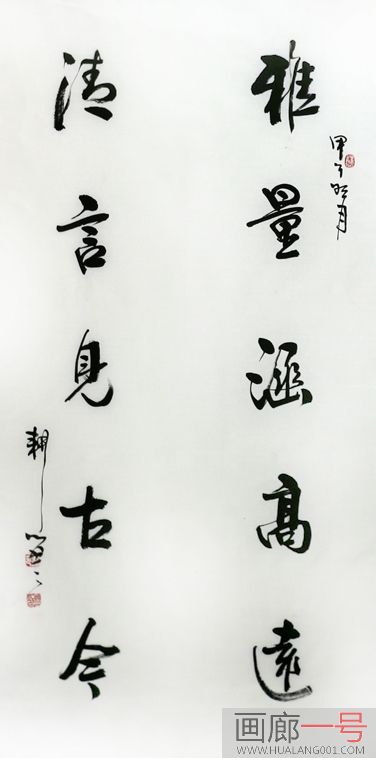 雅量涵高遠
清言見古今
画廊一号
WWW.HUALANG001.COM